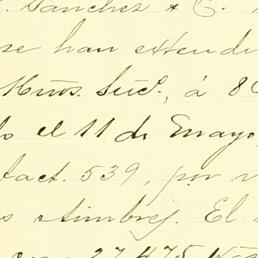 Sanchez & C.
se han extendi
Hnos. Suc.s, á 8
o el 11 de Mayo,
fact. 539, por v
s timbres. El
27.475